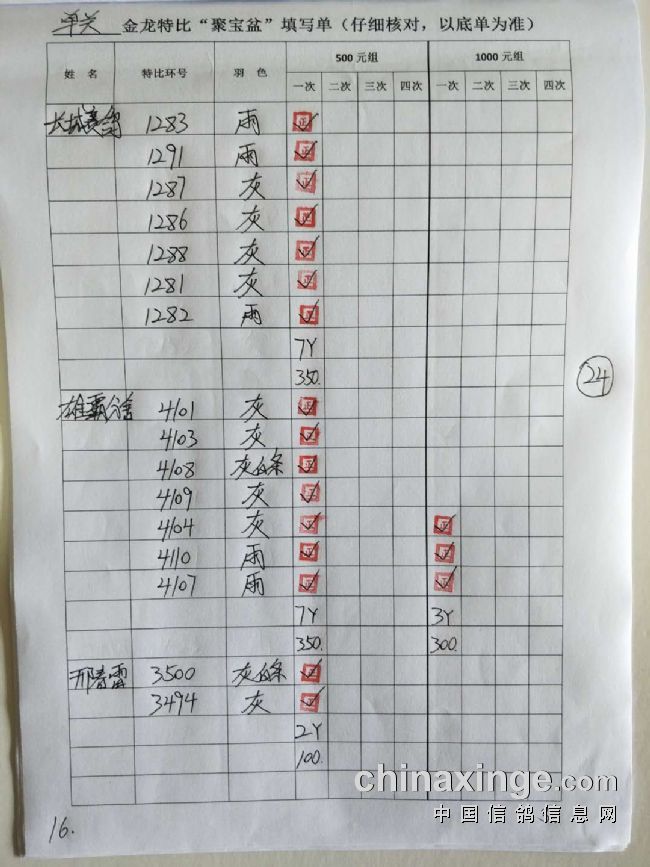 单关 金龙特比“聚宝盆”填写单（仔细核对，以底单为准）
姓 名 特比环号 羽 色 500 元组 1000 元组
一次 二次 三次 四次 一次 二次 三次 四次
长城赛鸽 1283 雨 正
1291 雨 正
1287 灰 正
1286 灰 正
1288 灰 正
1281 灰 正
1282 雨 正
7Y
350.
24
雄霸分舍 4101 灰 正
4103 灰 正
4108 灰白条 正
4109 灰 正
4104 灰 正 正
4110 雨 正 正
4107 雨 正 正
7Y 3Y
350. 300.
3500 灰白条 正
3494 灰 正
2Y
100.
chinaxinge.com
中国信鸽信息网
16.